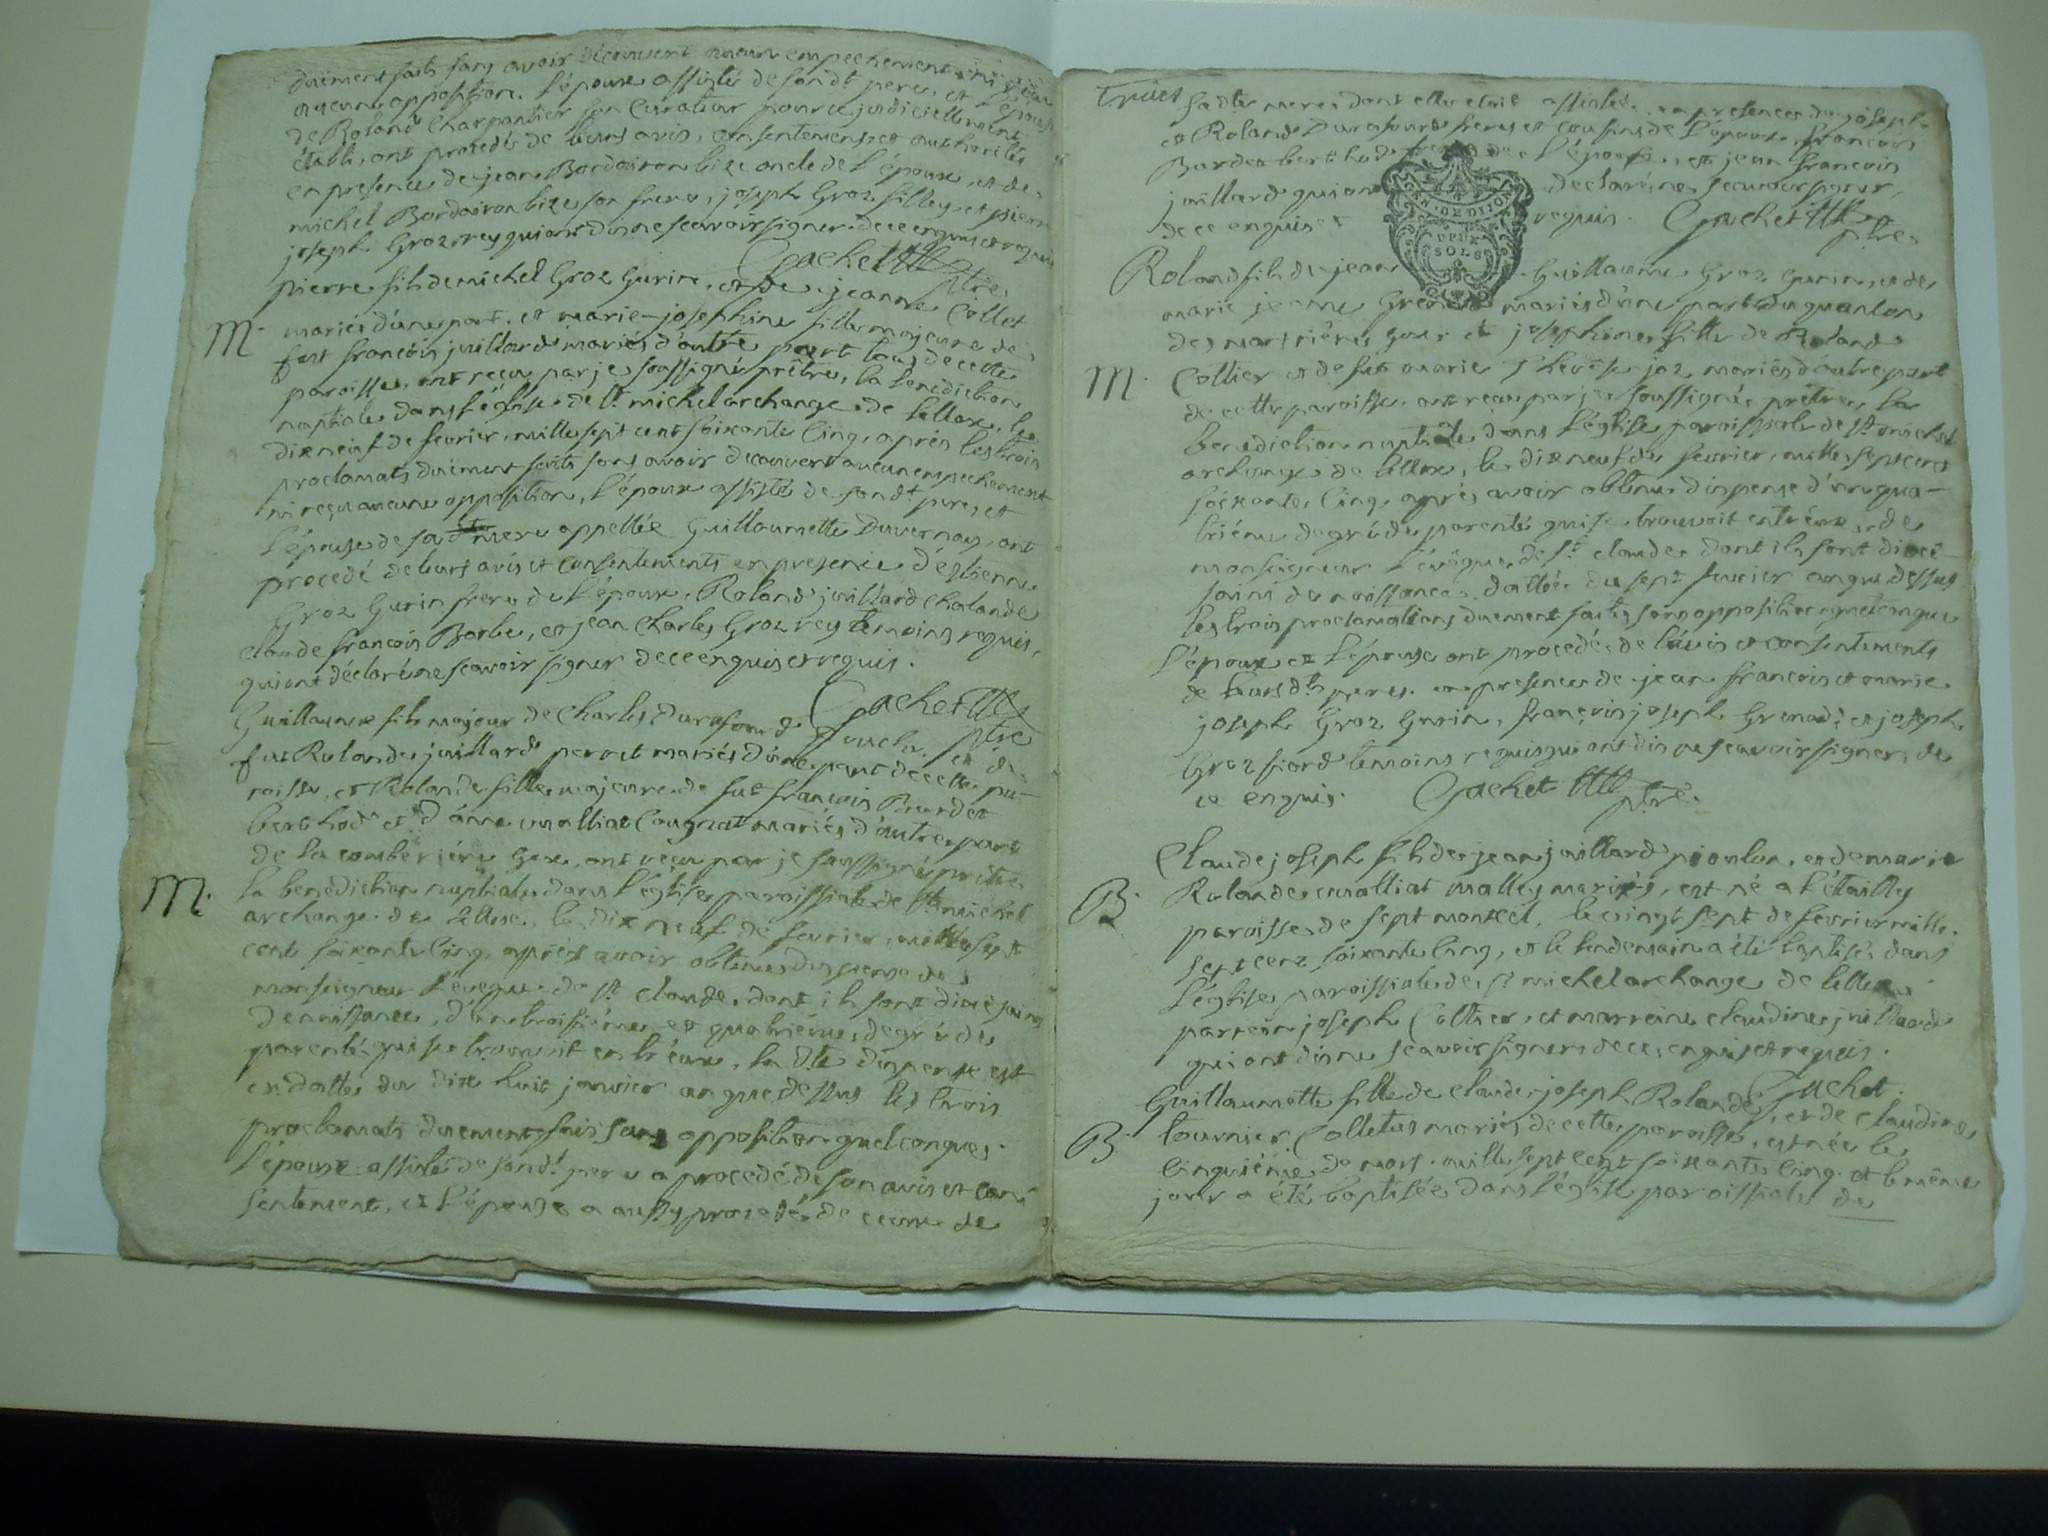 duëment faits sans avoir découvert aucun empechement ni reçu
aucune opposition. L'époux assisté de son dt pere, et L'épouse
de Roland Charpantier son Curateur pour ce judiciellement
établi, ont procedés de leurs avis, consentements et authorités
en presence de jean Bordairon bize oncle de L'époux, et de
michel Bordaironbize son frere, joseph Groz filley et pierre
joseph Grozrey qui ont dis ne scavoir signer de ce enquis et requis
Gachet ptre
pierre fils de michel Groz Gurin, et de jeanne Collet
M. mariés d'une part, et marie-josephine fille majeure de
fut françois juillard mariés d'autre part tous de cette
paroisse, ont reçu par je soussigné prêtre, la benediction
nuptiale dans l'église de st michel archange de lellex, le
dixneuf de fevrier, mille sept cent soixante Cinq, après les trois
proclamats duëment faits sans avoir decouvert aucun empechement
ni reçu aucune opposition, L'époux assisté de son dt pere, et
L'épouse de sa dt mere appellée Guillaumette Duvernay, ont
procedé de leurs avis et consentements en presence d'estienne
Groz Gurin frere de L'époux, Roland juillard chalande
claude françois Barbe, et jean Charles Groz rey témoins requis,
qui ont déclaré ne scavoir signer de ce enquis et requis.
Gachet ptre
Guillaume fils majeur de Charles Durafourd et de
fut Rolande juillard perret mariés d'une part de cette pa-
roisse, et Rolande fille majeure de fut françois Burdet
berthod et d'anne malliat Cougnat mariés d'autre part
de la combe Gex, ont reçu par je soussigné prêtre
M. la benediction nuptiale dans l'église paroissiale de st michel
archange de Lellex, le dix neuf de fevrier, mille sept
cent soixante Cinq, après avoir obtenu dispense de
monseigneur L'évêque de st claude, dont ils sont diocésains
de naissance, d'un troisiéme et quatriéme degré de
parenté qui se trouvoit entr'eux, la dte dispense est
en datte du dix huit janvier an que dessus les trois
proclamats duement fais sans opposition quelconques.
L'époux assisté de son dt pere a procedé de son avis et con-
sentement, et L'épouse a aussy procedé de ceux de
sa dte mere dont elle etoit assistée, en presence de joseph
et Roland Durafourd freres et cousins de L'époux, françois
Burdet berthod de L'épouse, et jean françois
juillard qui ont declaré ne scavoir signer,
de ce enquis et requis. Gachet ptre
GEN. DE DIJON
DEUX
SOLS
Roland fils de jean Guillaume Groz Gurin, et de
marie jeanne Grenard mariés d'une part
et josephine fille de Roland
M. Collier et de fut marie Therése joz mariés d'autre part
de cette paroisse ont reçu par je soussigné prêtre, la
benediction nuptiale dans l'église paroissiale de st michel
archange de lellex, le dixneuf de fevrier, mille sept cent
soixante Cinq, après avoir obtenu dispense d'un qua-
triéme degré de parenté qui se trouvoit entr'eux, de
monseigneur L'évêque de st claude dont ils sont diocé-
sains de naissance, dattée du sept fevrier an que dessus
les trois proclamations duement faites sans opposition quelconque
L'époux et L'épouse ont procedés de l'avis et consentements
de leurs dts peres, en presence de jean françois et marie
joseph Groz Gurin, françois joseph Grenard et joseph
Groz fiord temoins requis qui ont dis ne scavoir signer, de
ce enquis. Gachet ptre.
Claude joseph fils de jean juillard et de marie
B. Rolande malliat malley mariés, est né a
paroisse de sept moncel, le vingt sept de fevrier mille
sept cent soixante Cinq, et le lendemain a été baptisé dans
l'église paroissiale de st michel archange de lellex
parrein joseph Collier, et marreine claudine juillard
qui ont dis ne scavoir signer de ce enquis et requis.
Gachet.
Guillaumette fille de claude joseph Rolandez, et de claudine
B. tournier Colletus mariés de cette paroisse, est née le
Cinquiéme de mars mille sept cent soixante Cinq et le même
jour a été baptisée dans l'église paroissiale de